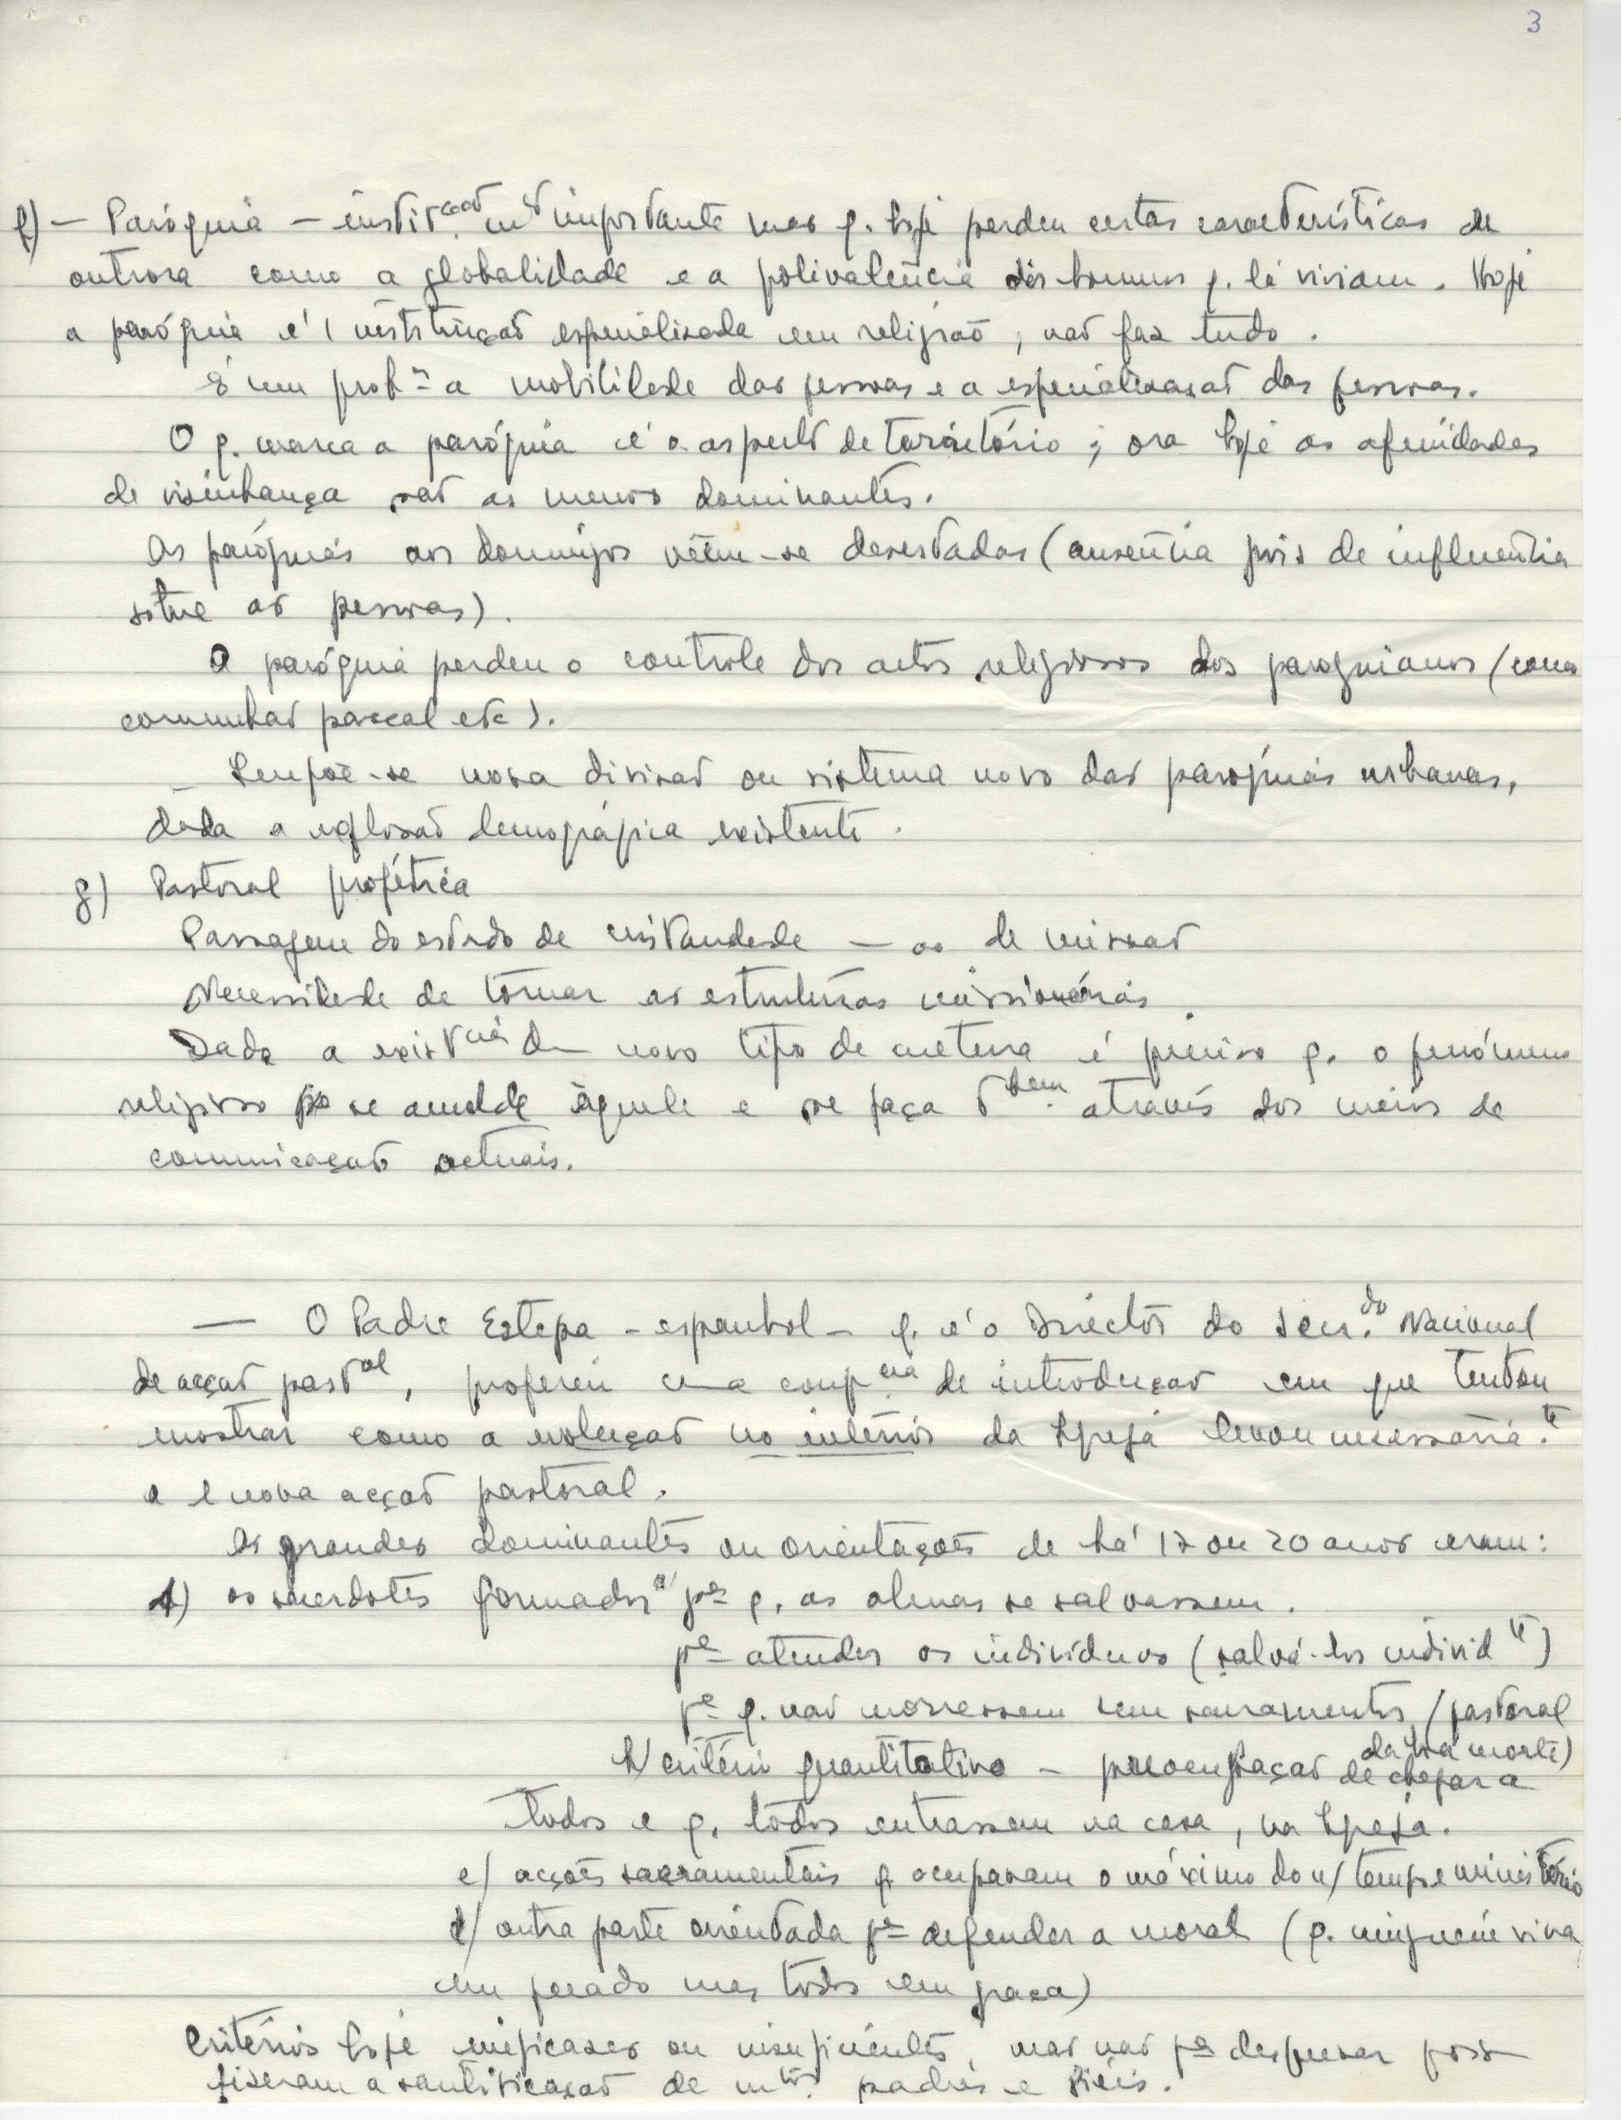 3
f) — Paróquia — institção mtº importante mas q. hoje perdeu certas características de
outrora como a globalidade e a polivalência dos homens q. lá viviam. Hoje
a paróquia é 1 instituição especializada em religião, não faz tudo.
É um probª a mobilidade das pessoas e a especialização das pessoas.
O q. marca a paróquia é o aspecto de território; ora hoje as afinidades
de vizinhança são as menos dominantes.
As paróquias aos domingos vêem-se desertadas (ausência pois de influência
sobre as pessoas).
A paróquia perdeu o controle dos actos religiosos dos paroquianos (como
comunhão pascal etc).
Impõe-se nova divisão ou sistema novo das paróquias urbanas,
dada a explosão demográfica existente.
g) Pastoral profética
Passagem do estado de cristandade — ao de missão
Necessidade de tornar as estruturas missionárias.
Dada a existcia de novo tipo de cultura é preciso q. o fenómeno
religioso se amolde àquele e se faça tbem. através dos meios de
comunicação actuais.
— O Padre Estepa - espanhol - q. é o Director do Secr.do Nacional
de acção pastal, proferiu uma confcia de introdução em que tentou
mostrar como a evolução no interior da Igreja levou necessaria.te
a 1 nova acção pastoral.
As grandes dominantes ou orientações de há 17 ou 20 anos eram:
1) os sacerdotes formados a) pª q. as almas se salvassem.
pª atender os indivíduos (salvá-los individte)
pª q. não morressem sem sacramentos (pastoral
da boa morte)
b) critério quantitativo - preocupação de chegar a
todos e q. todos entrassem na casa, na Igreja.
c) acções sacramentais q. ocupavam o máximo do n/ tempo e ministério
d) outra parte orientada pª defender a moral (q. ninguém viva
em pecado mas todos em graça)
Critérios hoje ineficazes ou insuficientes, mas não pª desprezar pois
fizeram a santificação de mtos. padres e fiéis.